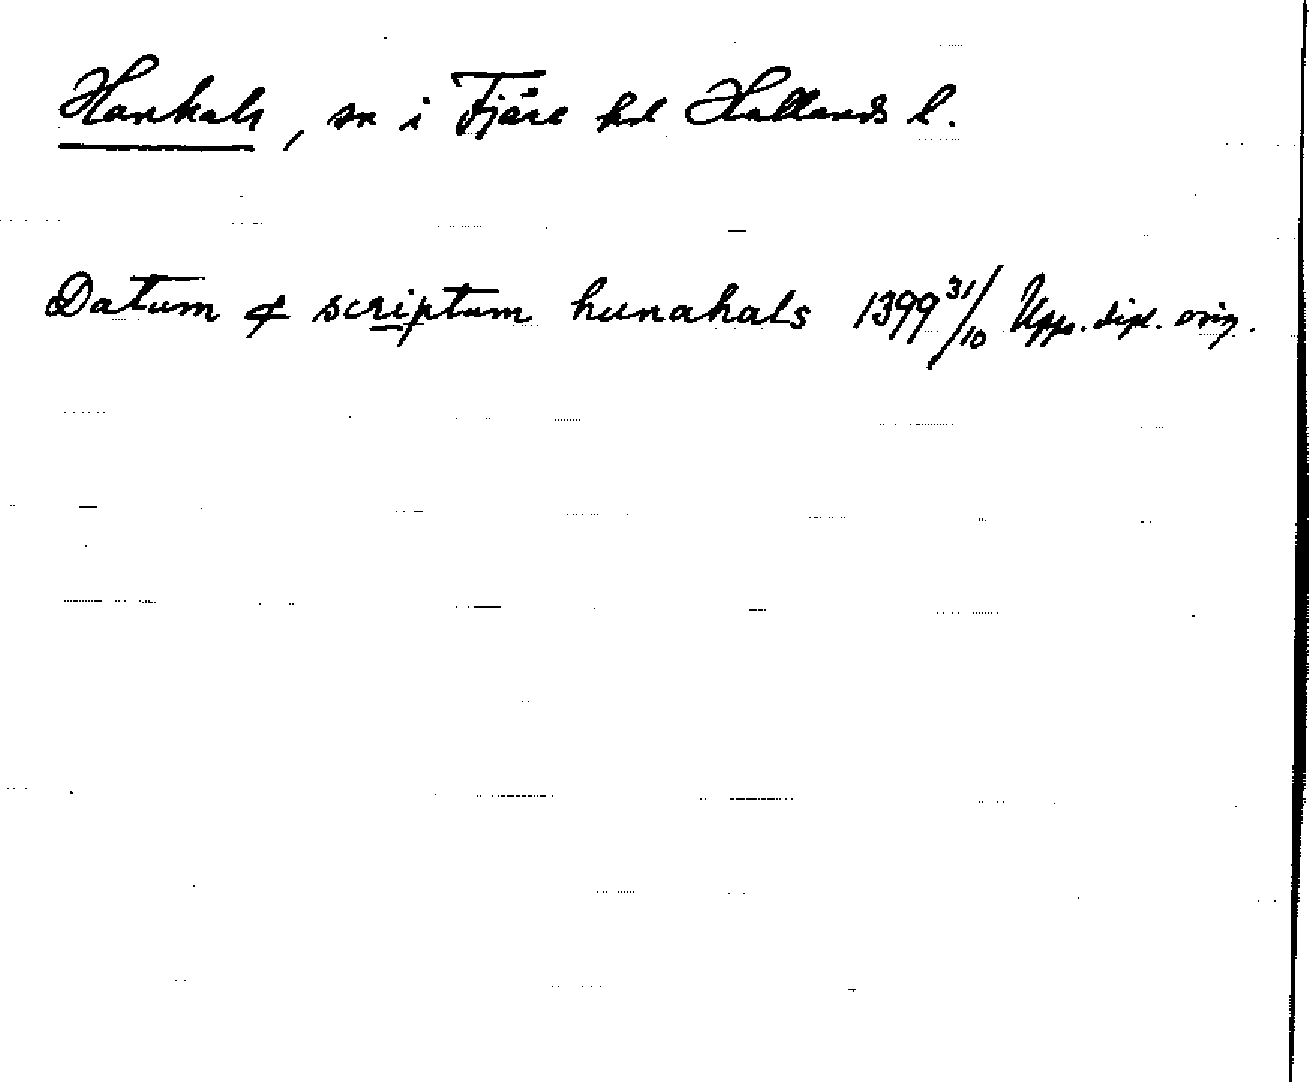 Hanhals, sn i Fjäre hd Hallands l.
Datum & scriptum hunahals 1399 31/10 Upps. dipl. orig.